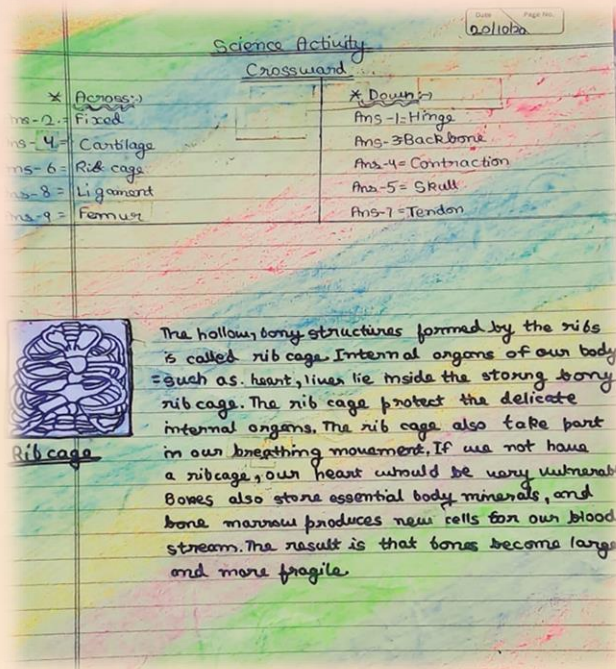 Date
Page No.
20/10/20
Science Activity
Crossward
* Across:-)
ns-2.= Fixed
ns-4= Cartilage
ns-6= Rib cage
ns-8= Ligament
ns-9= Femur
* Down:-)
Ans-1=Hinge
Ans-3=Backbone
Ans-4=Contraction
Ans-5= Skull
Ans-7=Tendon
The hollow, bony structures formed by the ribs
is called rib cage. Internal organs of our body
=such as. heart, liver lie inside the storng bony
rib cage. The rib cage protect the delicate
internal organs. The rib cage also take part
in our breathing movement. If we not have
a ribcage, our heart whould be very vulnerabl
Bones also store essential body minerals, and
bone marrow produces new cells for our blood
stream. The result is that bones become large
and more fragile.
Rib cage